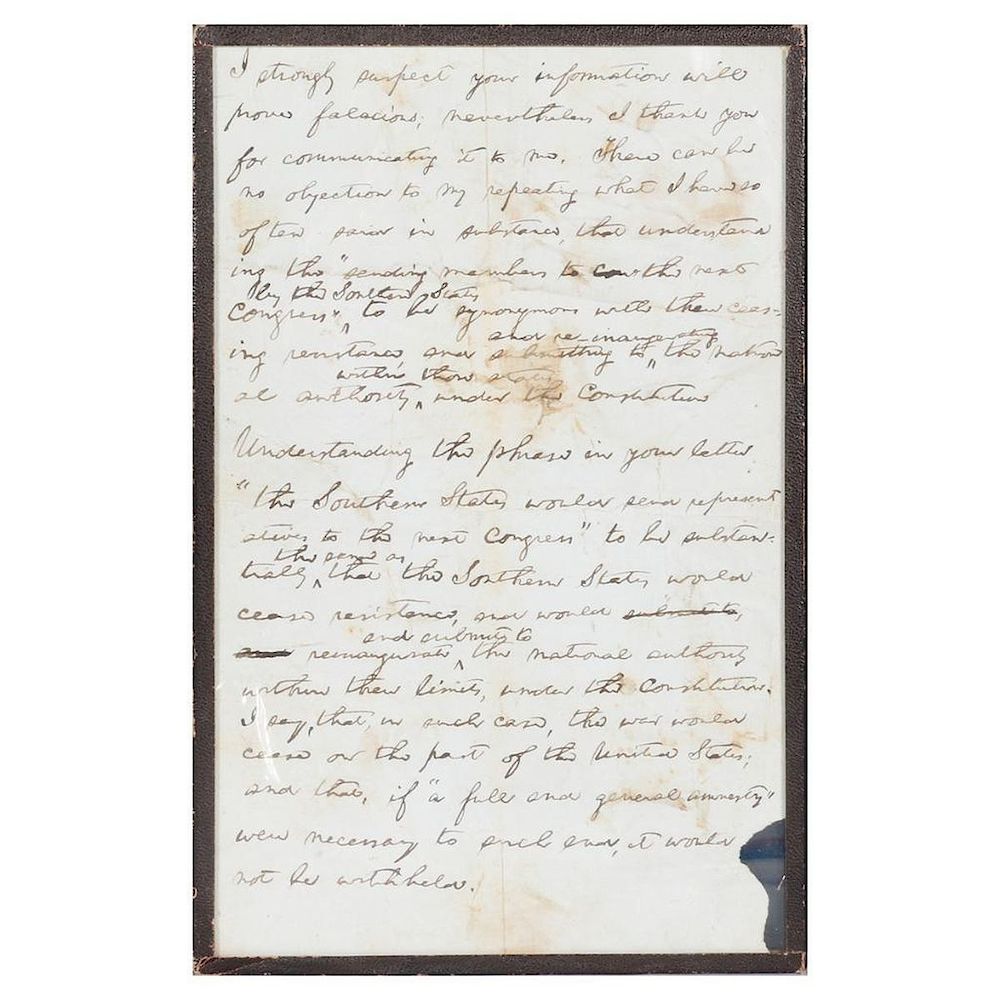 I strongly suspect your information will
prove falacious; nevertheless I thank you
for communicating it to me. There can be
no objection to my repeating what I have so
often said in substance, that understand
ing the "sending members to the next
by the Southern States
Congress", to be synonymous with their ceas-
and re-inaugurating
ing resistance, and submitting to, the nation
within those states
al authority, under the Constitution
Understanding the phrase in your letter
"the Southern States would send represent
atives to the next Congress" to be substan-
the same as
tially, that the Southern States would
cease resistance, and would submit to,
and submit to
reinaugurate the national authority
within their limits, under the Constitution.
I say, that, in such case, the war would
cease on the part of the United States;
and that, if "a full and general amnesty"
were necessary to such end, it would
not be withheld.